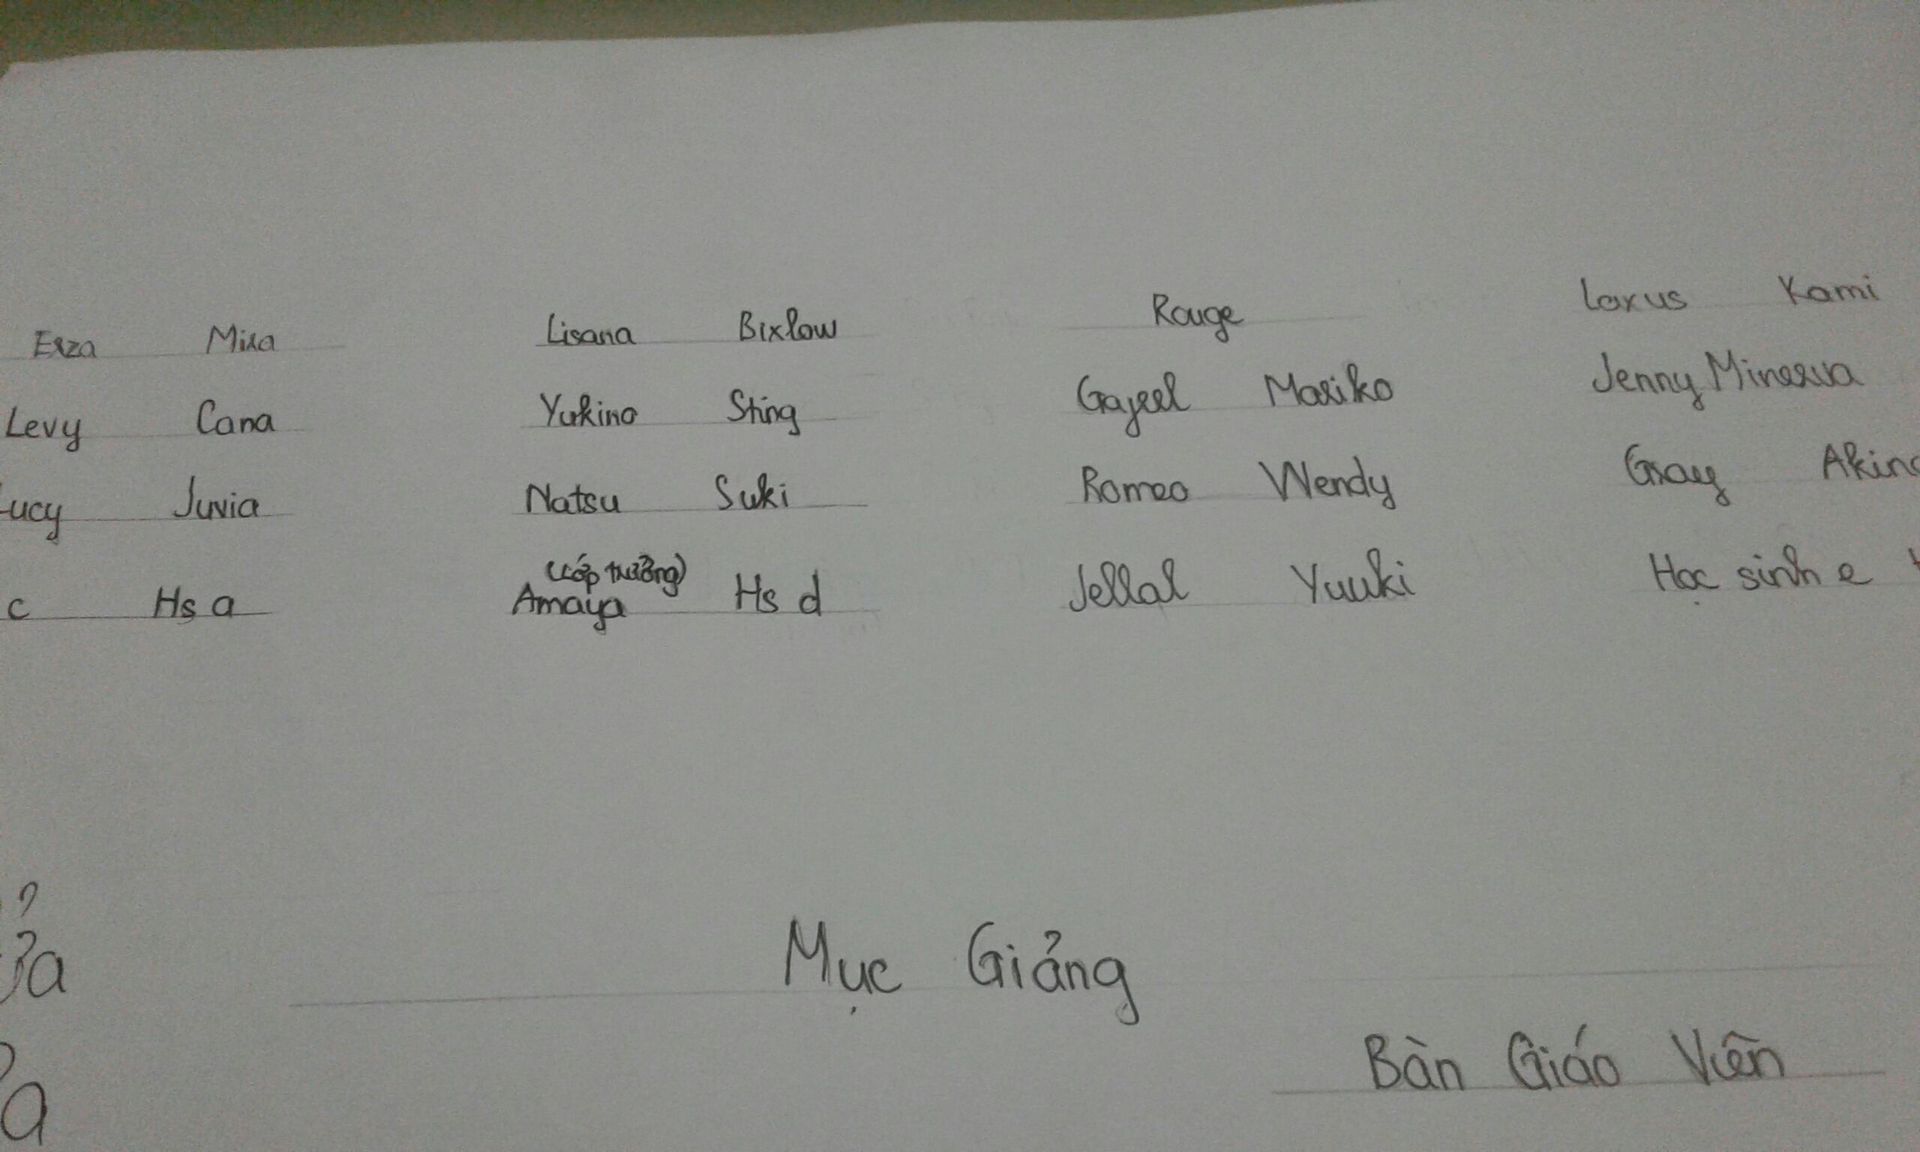 Erza Mira Lisana Bixlow Rouge Laxus Kami
Levy Cana Yukino Sting Gajeel Mariko Jenny Minerva
Lucy Juvia Natsu Suki Romeo Wendy Gray
(Lớp trưởng)
c Hs a Amaya Hs d Jellal Yuuki Học sinh e
Mục Giảng
Bàn Giáo Viên